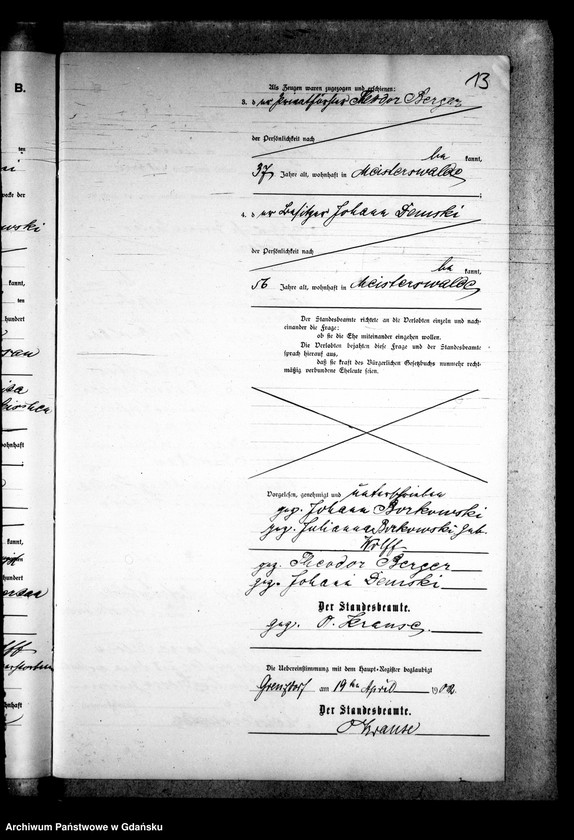 B.
13
Als Zeugen waren zugezogen und erschienen:
3. der Privatförster Theodor Berger
der Persönlichkeit nach
be kannt,
37 Jahre alt, wohnhaft in Meisterswalde
;
4. der Besitzer Johann Demski
der Persönlichkeit nach
be kannt,
56 Jahre alt, wohnhaft in Meisterswalde
Der Standesbeamte richtete an die Verlobten einzeln und nach-
einander die Frage:
ob sie die Ehe miteinander eingehen wollen.
Die Verlobten bejahten diese Frage und der Standesbeamte
sprach hierauf aus,
daß sie kraft des Bürgerlichen Gesetzbuchs nunmehr recht-
mäßig verbundene Eheleute seien.
Vorgelesen, genehmigt und unterschrieben
gez. Johann Borkowski
gez. Julianna Borkowski geb.
Wolff
gez. Theodor Berger
gez. Johann Demski
Der Standesbeamte.
gez. O. Krause.
Die Uebereinstimmung mit dem Haupt-Register beglaubigt
Grenzdorf am 19ten April 1902
Der Standesbeamte.
O Krause
Archiwum Państwowe w Gdańsku